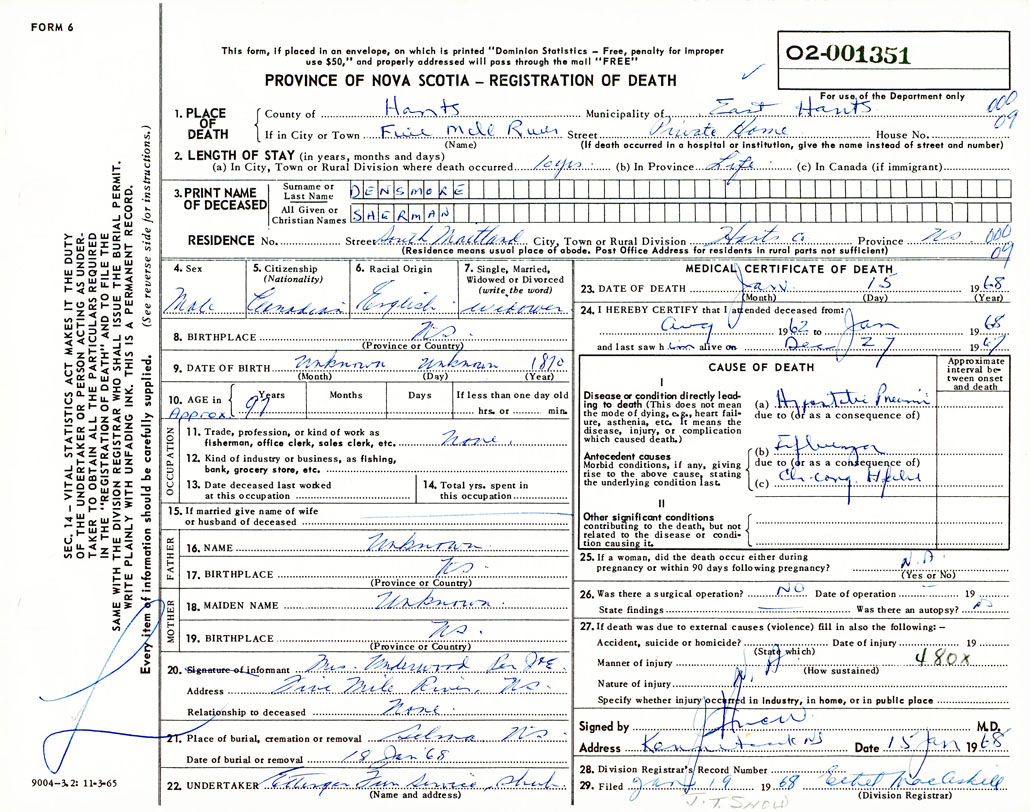 FORM 6
This form, if placed in an envelope, on which is printed "Dominion Statistics – Free, penalty for improper
use $50," and properly addressed will pass through the mail "FREE"
02-001351
For use of the Department only
PROVINCE OF NOVA SCOTIA – REGISTRATION OF DEATH
1. PLACE OF DEATH
County of Hants Municipality of East Hants 000
If in City or Town Five Mile River Street Private Home House No. 09
(Name) (If death occurred in a hospital or institution, give the name instead of street and number)
2. LENGTH OF STAY (in years, months and days)
(a) In City, Town or Rural Division where death occurred 10 yrs. (b) In Province Life (c) In Canada (if immigrant)
3. PRINT NAME OF DECEASED
Surname or Last Name DENSMORE
All Given or Christian Names SHERMAN
RESIDENCE No. Street South Maitland City, Town or Rural Division Hants Co Province NS. 000
(Residence means usual place of abode. Post Office Address for residents in rural parts not sufficient) 09
4. Sex
Male
5. Citizenship
(Nationality)
Canadian
6. Racial Origin
English
7. Single, Married,
Widowed or Divorced
(write the word)
widower
8. BIRTHPLACE NS.
(Province or Country)
9. DATE OF BIRTH Unknown Unknown 1870
(Month) (Day) (Year)
10. AGE in Years Months Days If less than one day old
Approx. 97 hrs. or min.
OCCUPATION
11. Trade, profession, or kind of work as
fisherman, office clerk, sales clerk, etc. None.
12. Kind of industry or business, as fishing,
bank, grocery store, etc.
13. Date deceased last worked
at this occupation
14. Total yrs. spent in
this occupation
15. If married give name of wife
or husband of deceased
FATHER
16. NAME Unknown.
17. BIRTHPLACE NS.
(Province or Country)
MOTHER
18. MAIDEN NAME Unknown
19. BIRTHPLACE NS.
(Province or Country)
20. Signature of informant Mrs. Underwood Per
Address Five Mile River, NS.
Relationship to deceased None.
21. Place of burial, cremation or removal Selma NS.
Date of burial or removal 18 Jan 68
22. UNDERTAKER Ettinger Fun Service,
(Name and address)
MEDICAL CERTIFICATE OF DEATH
23. DATE OF DEATH Jan 15 1968
(Month) (Day) (Year)
24. I HEREBY CERTIFY that I attended deceased from:
Aug 1962 to Jan 1968
and last saw him alive on Dec 27 1967
CAUSE OF DEATH
Approximate
interval be-
tween onset
and death
I
Disease or condition directly lead-
ing to death (This does not mean
the mode of dying, e.g., heart fail-
ure, asthenia, etc. It means the
disease, injury, or complication
which caused death.)
(a)
due to (or as a consequence of)
Antecedent causes
Morbid conditions, if any, giving
rise to the above cause, stating
the underlying condition last.
(b) Influenza
due to (or as a consequence of)
(c)
II
Other significant conditions
contributing to the death, but not
related to the disease or condi-
tion causing it.
25. If a woman, did the death occur either during
pregnancy or within 90 days following pregnancy? N.A.
(Yes or No)
26. Was there a surgical operation? NO Date of operation 19
State findings Was there an autopsy?
27. If death was due to external causes (violence) fill in also the following: –
Accident, suicide or homicide? Date of injury 19
(State which)
Manner of injury N.A 480X
(How sustained)
Nature of injury
Specify whether injury occurred in Industry, in home, or in public place
Signed by M.D.
Address Date 15 Jan 1968
28. Division Registrar's Record Number
29. Filed Jan 19 1968 Ethel MacAskill
(Division Registrar)
J.T. SNOW
SEC. 14 – VITAL STATISTICS ACT MAKES IT THE DUTY
OF THE UNDERTAKER OR PERSON ACTING AS UNDER-
TAKER TO OBTAIN ALL THE PARTICULARS REQUIRED
IN THE "REGISTRATION OF DEATH" AND TO FILE THE
SAME WITH THE DIVISION REGISTRAR WHO SHALL ISSUE THE BURIAL PERMIT.
WRITE PLAINLY WITH UNFADING INK. THIS IS A PERMANENT RECORD.
Every item of information should be carefully supplied. (See reverse side for instructions.)
9004-3.2: 11-3-65